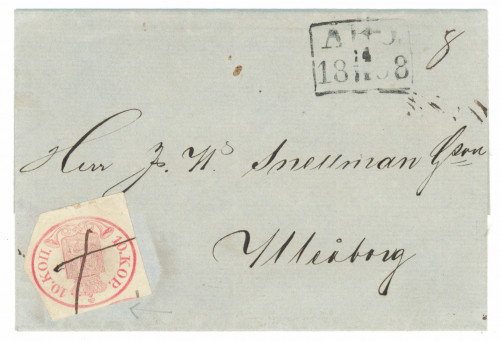 ÅBO.
14
18 11 58
8
Herr J. W:s Snellman Gson
Uleåborg
10.КОП. 10.KOP.